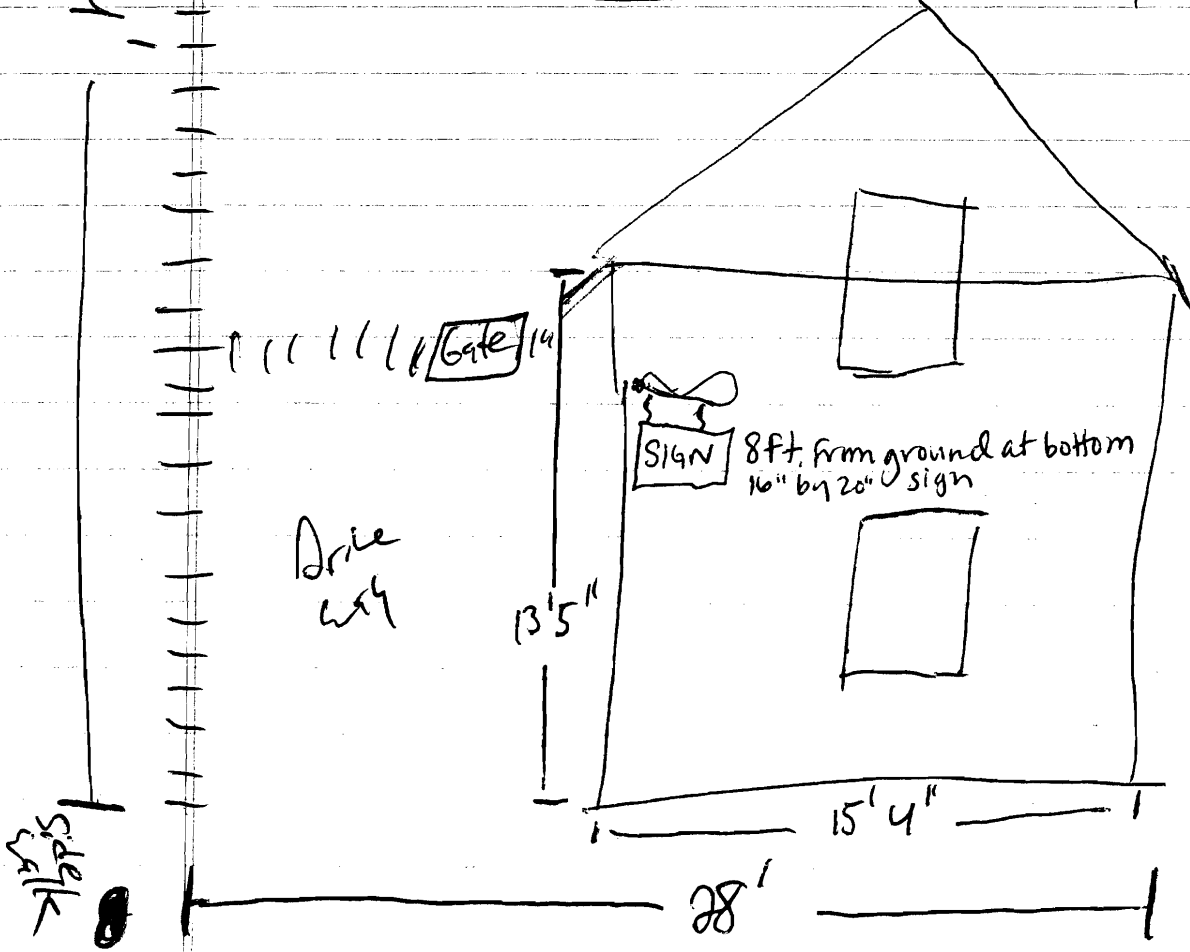 Gate
SIGN
8ft. from ground at bottom
16" by 20" sign
Drive
way
13'5"
15' 4"
Side
walk
28'